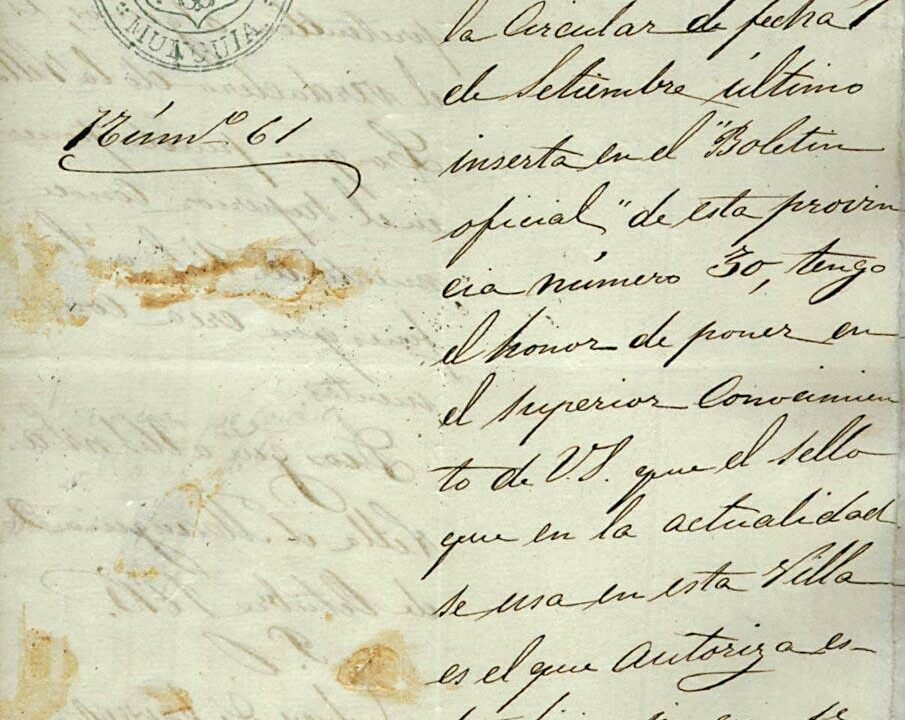 MUNGUIA
Núm.º 61
la Circular de fecha 1
de Setiembre último
inserta en el "Boletin
oficial" de esta provin
cia número 30, tengo
el honor de poner en
el superior Conocimien
to de V.S. que el sello
que en la actualidad
se usa en esta Villa
es el que Autoriza es-